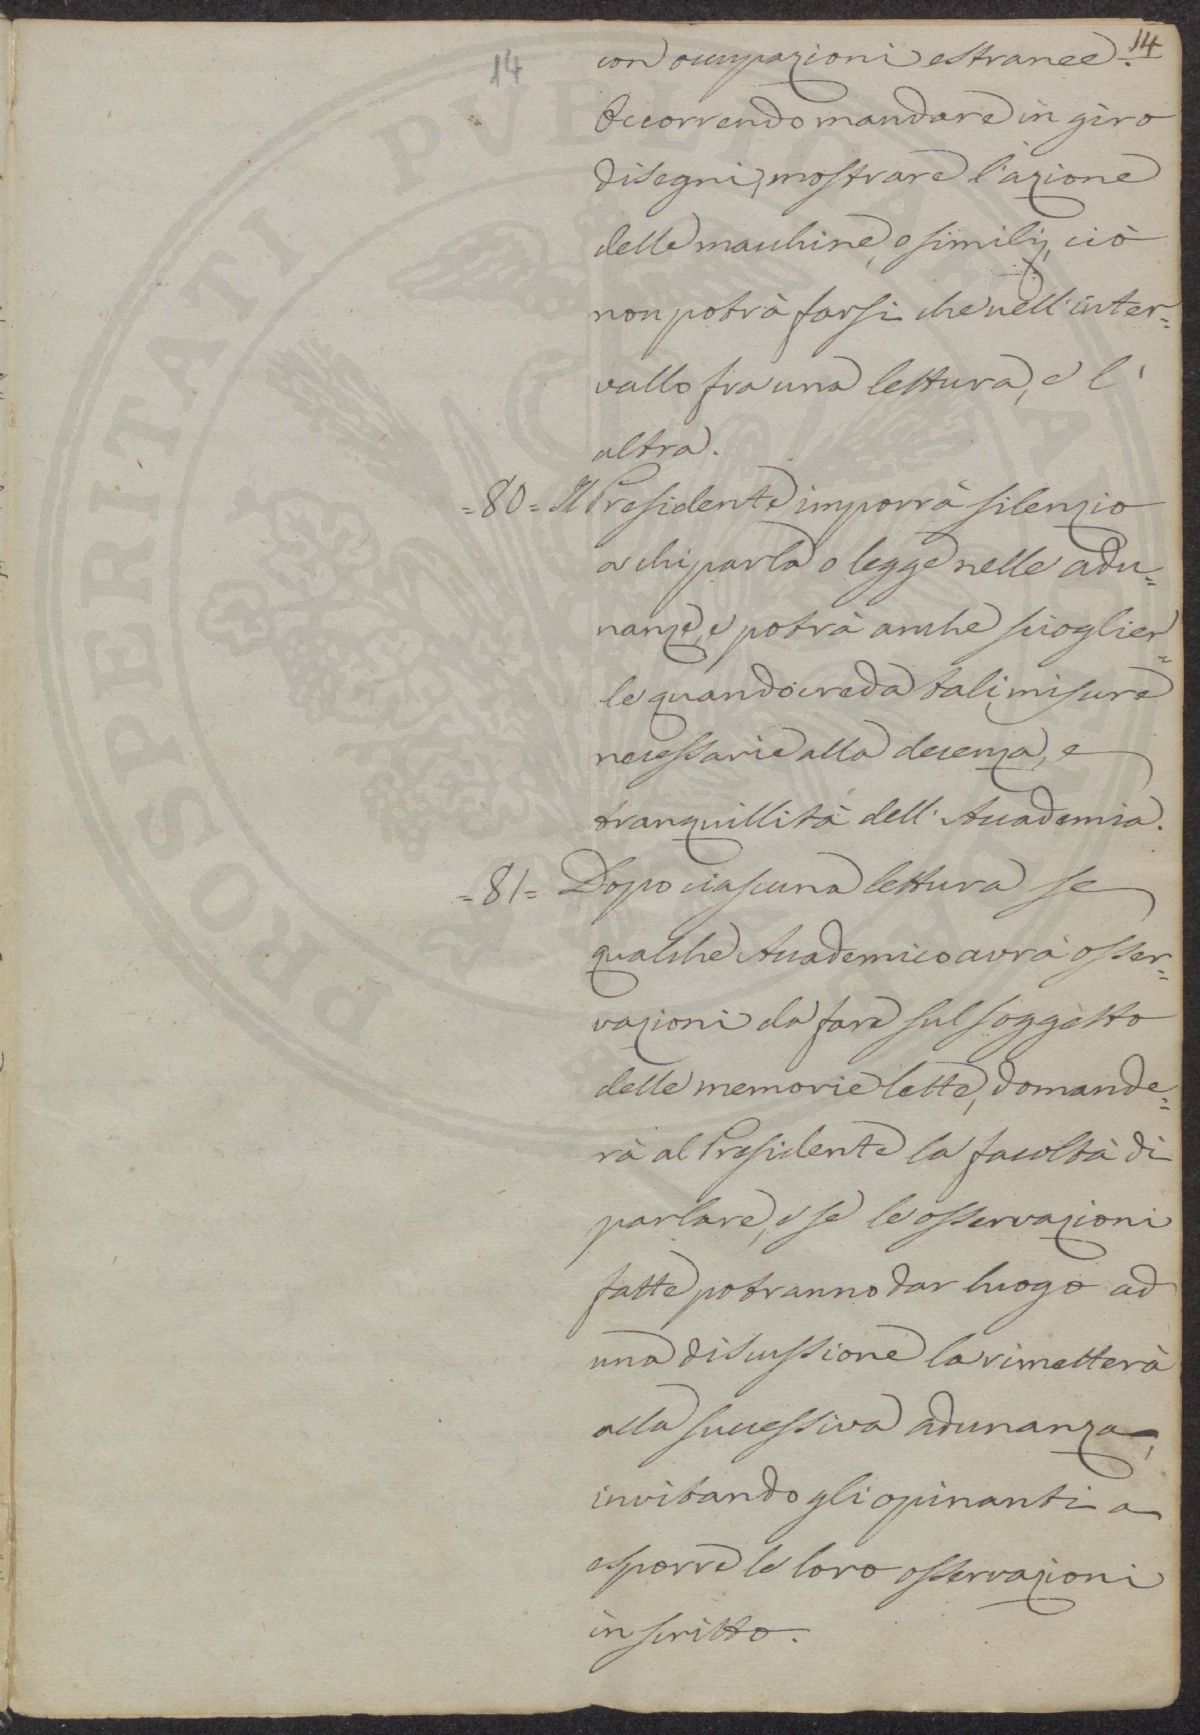 14
14
con occupazioni estranee.
Occorrendo mandare in giro
disegni, mostrare l'azione
delle macchine, o simili, ciò
non potrà farsi che nell'inter=
vallo fra una lettura, e l'
altra.
=80= Il Presidente imporrà silenzio
a chi parla o legge nelle adu=
nanze, e potrà anche scioglier=
le quando creda tali misure
necessarie alla decenza, e
tranquillità dell'Accademia.
=81= Dopo ciascuna lettura se
qualche Accademico avrà osser=
vazioni da fare sul soggetto
delle memorie lette, domande=
rà al Presidente la facoltà di
parlare, e se le osservazioni
fatte potranno dar luogo ad
una discussione la rimetterà
alla successiva adunanza,
invitando gli opinanti a
esporre le loro osservazioni
in scritto.
PROSPERITATI PVBLICAE